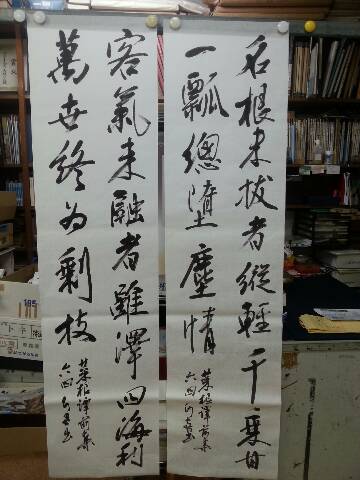 名根未拔者縱輕千乘甘
一瓢總墮塵情
菜根譚前集
客氣未融者雖澤四海利
萬世終為剩技
菜根譚前集